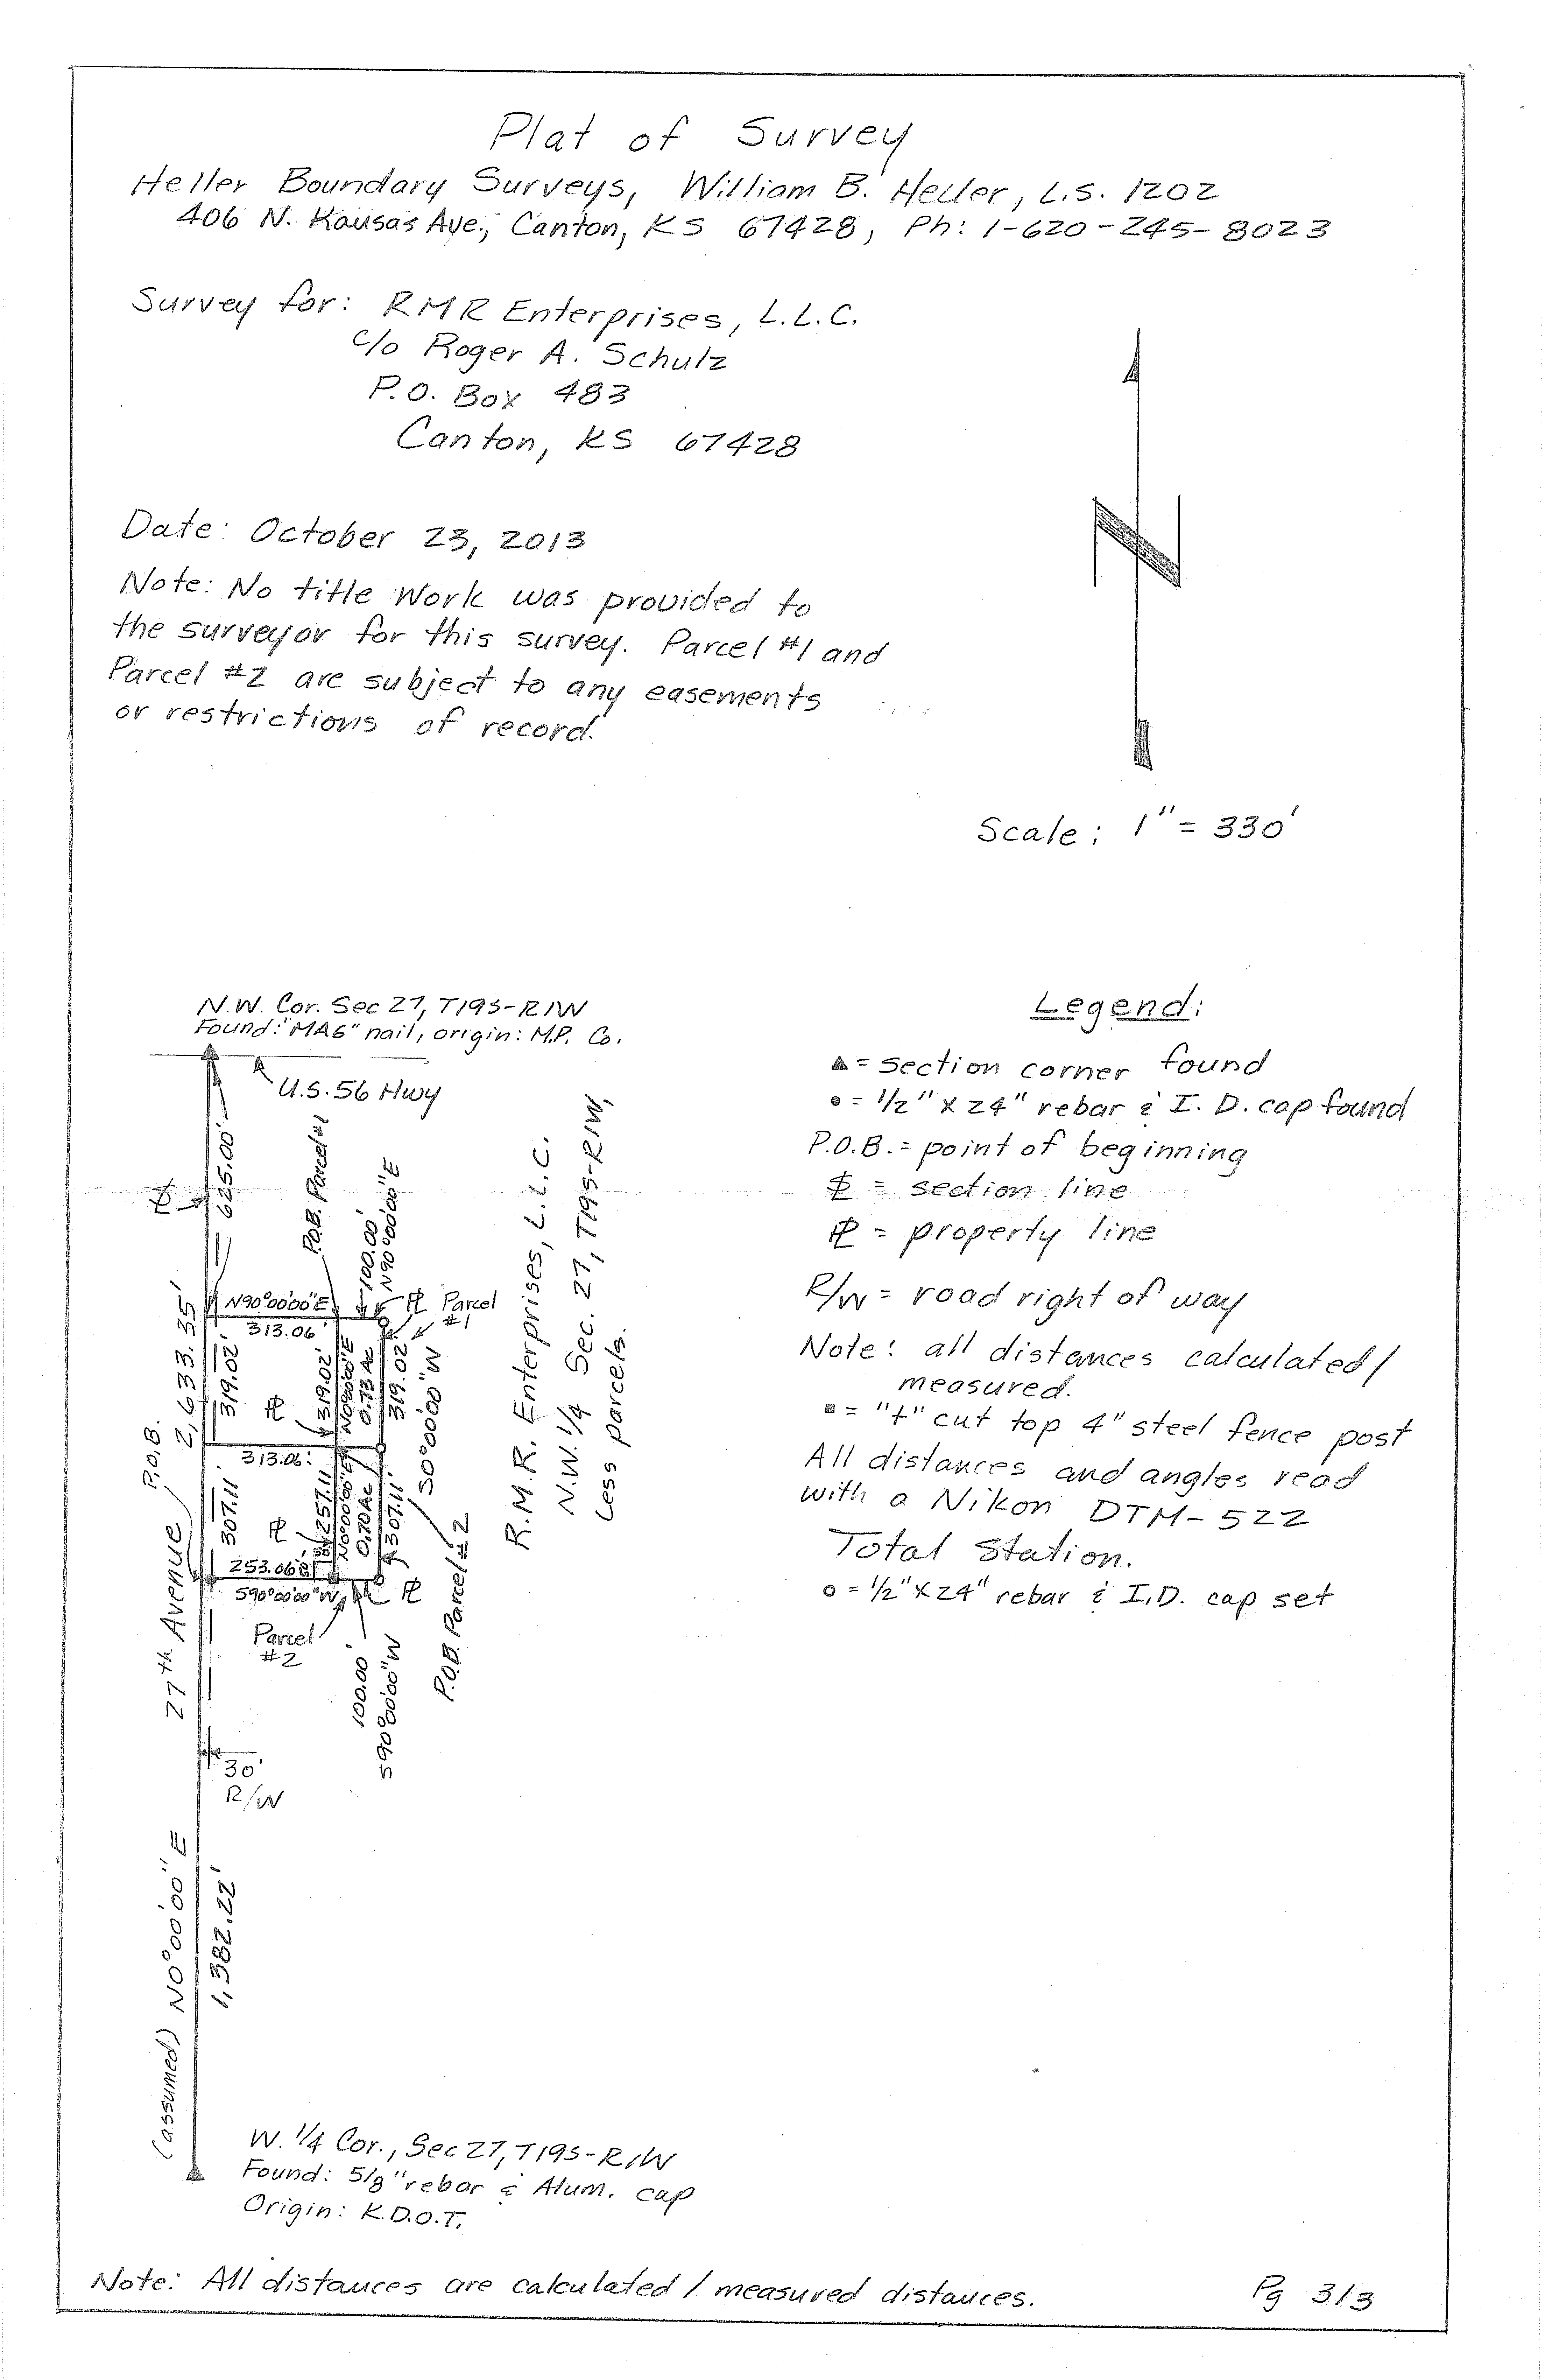 Plat of Survey
Heller Boundary Surveys, William B. Heller, L.S. 1202
406 N. Kansas Ave., Canton, KS 67428, Ph: 1-620-245-8023
Survey for: RMR Enterprises, L.L.C.
c/o Roger A. Schulz
P.O. Box 483
Canton, KS 67428
Date: October 23, 2013
Note: No title work was provided to
the surveyor for this survey. Parcel #1 and
Parcel #2 are subject to any easements
or restrictions of record.
N
Scale: 1" = 330'
N.W. Cor. Sec 27, T19S-R1W
Found: "MAG" nail, origin: M.P. Co.
U.S. 56 Hwy
625.00'
P.O.B. Parcel #1
100.00'
N90°00'00"E
N90°00'00"E
313.06'
PL Parcel
#1
2,633.35'
319.02'
PL
319.02'
N0°00'00"E
0.73 Ac
319.02'
S0°00'00"W
R.M.R. Enterprises, L.L.C.
N.W. 1/4 Sec. 27, T19S-R1W,
Less parcels.
P.O.B.
313.06'
307.11'
PL
257.11'
N0°00'00"E
0.70 Ac
307.11'
253.06'
S90°00'00"W
PL
Parcel
#2
100.00'
S90°00'00"W
P.O.B. Parcel #2
27th Avenue
30'
R/W
(assumed) N0°00'00"E
1,382.22'
W. 1/4 Cor., Sec 27, T19S-R1W
Found: 5/8" rebar & Alum. cap
Origin: K.D.O.T.
Legend:
▲ = section corner found
● = 1/2" x 24" rebar & I.D. cap found
P.O.B. = point of beginning
SL = section line
PL = property line
R/W = road right of way
Note: all distances calculated/
measured.
▪ = "+" cut top 4" steel fence post
All distances and angles read
with a Nikon DTM-522
Total Station.
o = 1/2" x 24" rebar & I.D. cap set
Note: All distances are calculated / measured distances.
Pg 3/3